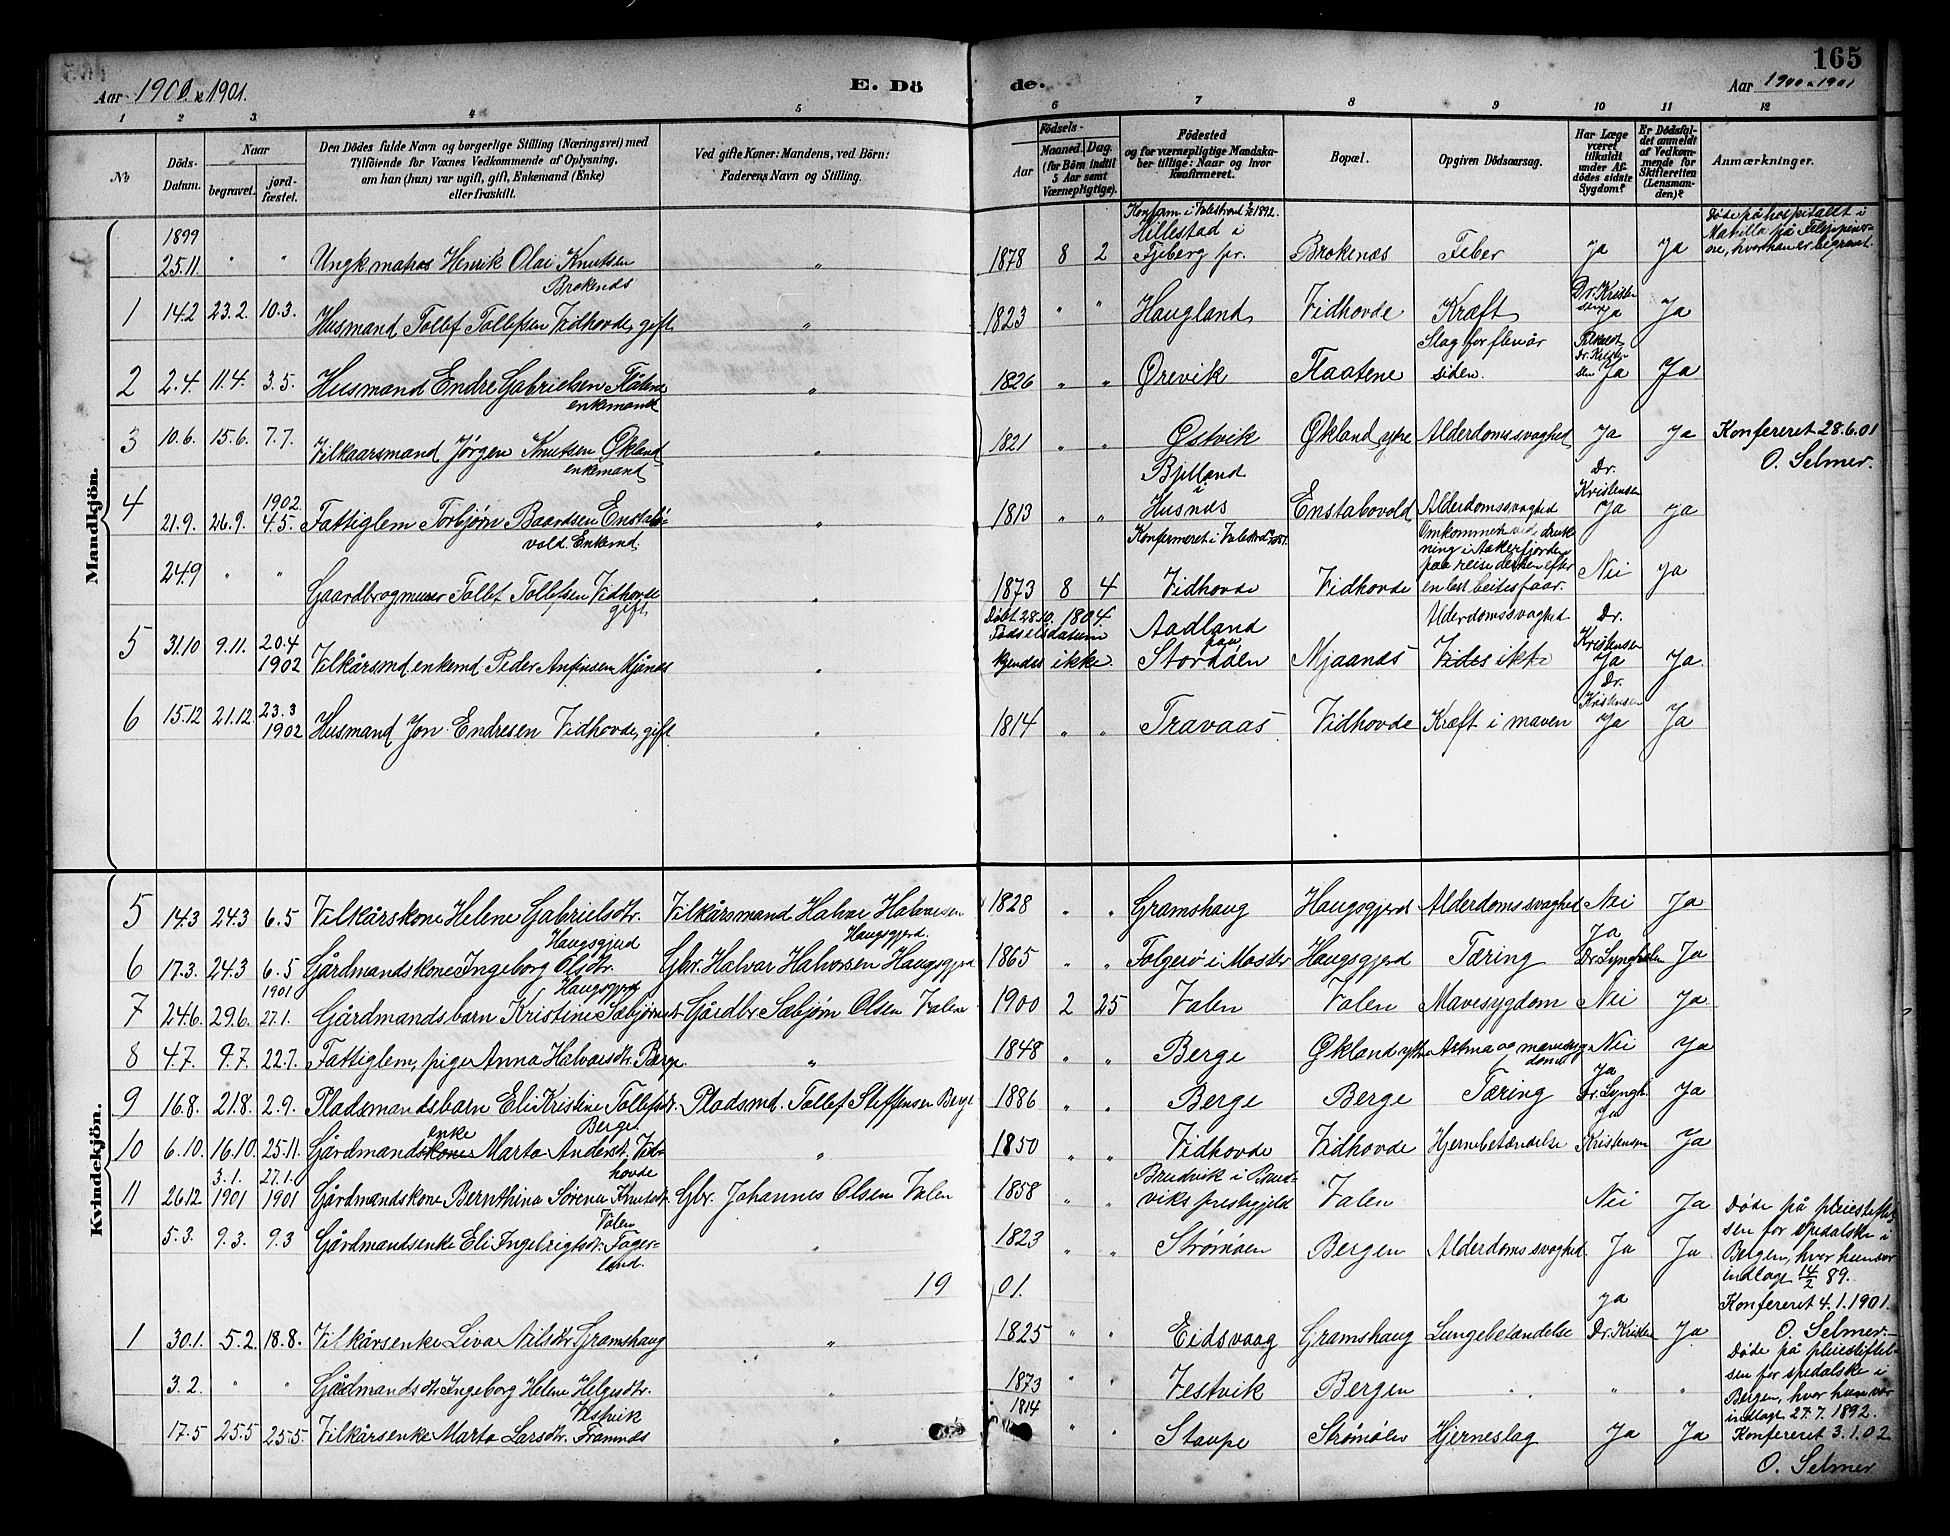 165
Aar 1900 & 1901.
E. Dö
de.
Aar 1900 & 1901
1 2 3. 4 5 6 7 8 9 10 11 12
No
Döds-Datum.
Naar
begravet.
jord-fæstet.
Den Dödes fulde Navn og borgerlige Stilling (Næringsvei) med
Tilföiende for Voxnes Vedkommende af Oplysning,
om han (hun) var ugift, gift, Enkemand (Enke)
eller fraskilt.
Ved gifte Koner: Mandens, ved Börn:
Faderens Navn og Stilling.
Födsels-
Aar
Maaned. Dag.
(for Börn indtil
5 Aar samt
Værnepligtige).
Födested
og for værnepligtige Mandska-
ber tillige: Naar og hvor
konfirmeret.
Bopæl.
Opgiven Dödsaarsag.
Har Læge
været
tilkaldt
under Af-
dödes sidste
Sygdom?
Er Dödsfal-
det anmeldt
af Vedkom-
mende for
Skifteretten
(Lensman-
den)?
Anmærkninger.
Mandkjön.
1899
25.11 " " Ungk. matros Henrik Olai Knutsen
Brokenæs
" 1878 8 2
Konfirm. i Valestrand 1892.
Hillestad i
Fjeberg pr.
Brokenæs Feber Ja Ja
Døde på hospitalet i
Manilla på Filippiner-
ne, hvor han er begravet.
1 14.2 23.2. 10.3. Husmand Tollef Tollefsen Vidhovde, gift " 1823 " " Haugland Vidhovde Kræft
Dr. Kristen
sen
Ja Ja
2 2.4. 11.4. 3.5. Husmand Endre Gabrielsen Flåtene
enkemand
" 1826 " " Ørevik Flaatene
Slag for flere år
siden.
Dr. Kristen
sen Ja Ja
3 10.6. 15.6. 7.7. Vilkaarsmand Jørgen Knutsen Økland
enkemand
" 1821 " " Østvik Økland ytre Alderdomssvaghed Ja Ja Konfereret 28.6.01
O. Selmer.
4 21.9. 26.9.
1902
4.5. Fattiglem Torbjørn Baardsen Enstabø-
vold. Enkemd.
" 1813 " "
Bjelland
i
Husnæs
Enstabovold Alderdomssvaghed
Dr.
Kristensen
Ja Ja
24.9 " " Gaardbrugmurer Tollef Tollefsen Vidhovde
gift
" 1873 8 4
Konfirmeret i Valestrand
Vidhovde Vidhovde
Omkommet ved druk-
ning i Aakerfjorden
paa reise derhen efter
en last beitesfaar.
Nei Ja
5 31.10 9.11.
20.4
1902 Vilkårsmd. enkemd Peder Anfinsen Mjånes "
Døbt 28.10. 1804.
Fødselsdatum
kjendes ikke
Aadland
paa
Stordøen
Mjaanes
Alderdomssvaghed
Vides ikke
Dr.
Kristensen
Ja Ja
6 15.12 21.12.
23.3
1902 Husmand Jon Endresen Vidhovde, gift " 1814 " " Travaas Vidhovde Kræft i maven
Dr.
Kristensen
Ja Ja
Kvindekjön.
5 14.3 24.3 6.5 Vilkårskone Helene Gabrielsdtr.
Haugsgjerd
Vilkårsmand Halvar Halvorsen
Haugsgjerd.
1828 " " Gramshaug Haugsgjerd Alderdomssvaghed Nei Ja
6 17.3. 24.3 6.5 Gårdmandskone Ingeborg Olsdtr.
Haugsgjerd
Gbr. Halvar Halvorsen Haugsgjerd 1865 " " Folgerø i Moster Haugsgjerd Tæring
Ja
Dr. Lyngholm Ja
7 24.6. 29.6.
1901
27.1. Gårdmandsbarn Kristine Sæbjørnsdtr Gårdbr. Sæbjørn Olsen Valen 1900 2 25 Valen Valen Mavesygdom Nei Ja
8 4.7. 9.7. 22.7. Fattiglem, pige Anna Halvorsdtr. Berge " 1848 " " Berge Økland ytre Astma og mavesyg
dom
Nei Ja
9 16.8. 21.8. 2.9. Pladsmandsbarn Eli Kristine Tollefsdtr.
Berge
Pladsmd. Tollef Steffensen Berge 1886 " " Berge Berge Tæring
Ja
Dr. Lyngh. Ja
10 6.10. 16.10. 25.11. Gårdmandskone
enke
Marta Andersdt. Vid-
hovde
" 1850 " " Vidhovde Vidhovde Hjernebetændelse
Ja
Kristensen Ja
11 26.12
3.1.
1901
27.1.
1901 Gårdmandskone Bernthina Sørena Knutsdtr.
Valen
Gbr. Johannes Olsen Valen 1858 " "
Brudvik i Brud-
viks prestegjeld
Valen Nei Ja
5.3. 9.3. 9.3 Gårdmandsenke Eli Ingebrigtsdtr. Fager-
land.
" 1823 " " Strømøen Bergen Alderdomssvaghed Ja Ja
Døde på pleiestiftel-
sen for spedalske i
Bergen, hvor hun var
indlagt 14/2 89.
Konfereret 4.1.1901.
O. Selmer.
1901.
1 30.1. 5.2. 18.8. Vilkårsenke Liva Nilsdtr Gramshaug " 1825 " " Eidsvaag Gramshaug Lungebetændelse
Ja
Dr. Kristen Ja
3.2. " " Gårdmandsdtr. Ingeborg Helene Helgesdtr.
Vestvik
" 1873 " " Vestvik Bergen " " "
Døde på pleiestiftel-
sen for spedalske i
Bergen, hvor hun var
indlagt 27.7. 1892.
Konfereret 3.1.02.
O. Selmer
17.5 25.5 25.5. Vilkårsenke Marta Larsdtr. Framnæs " 1814 " " Staupe Strømøen Hjerneslag Ja Ja